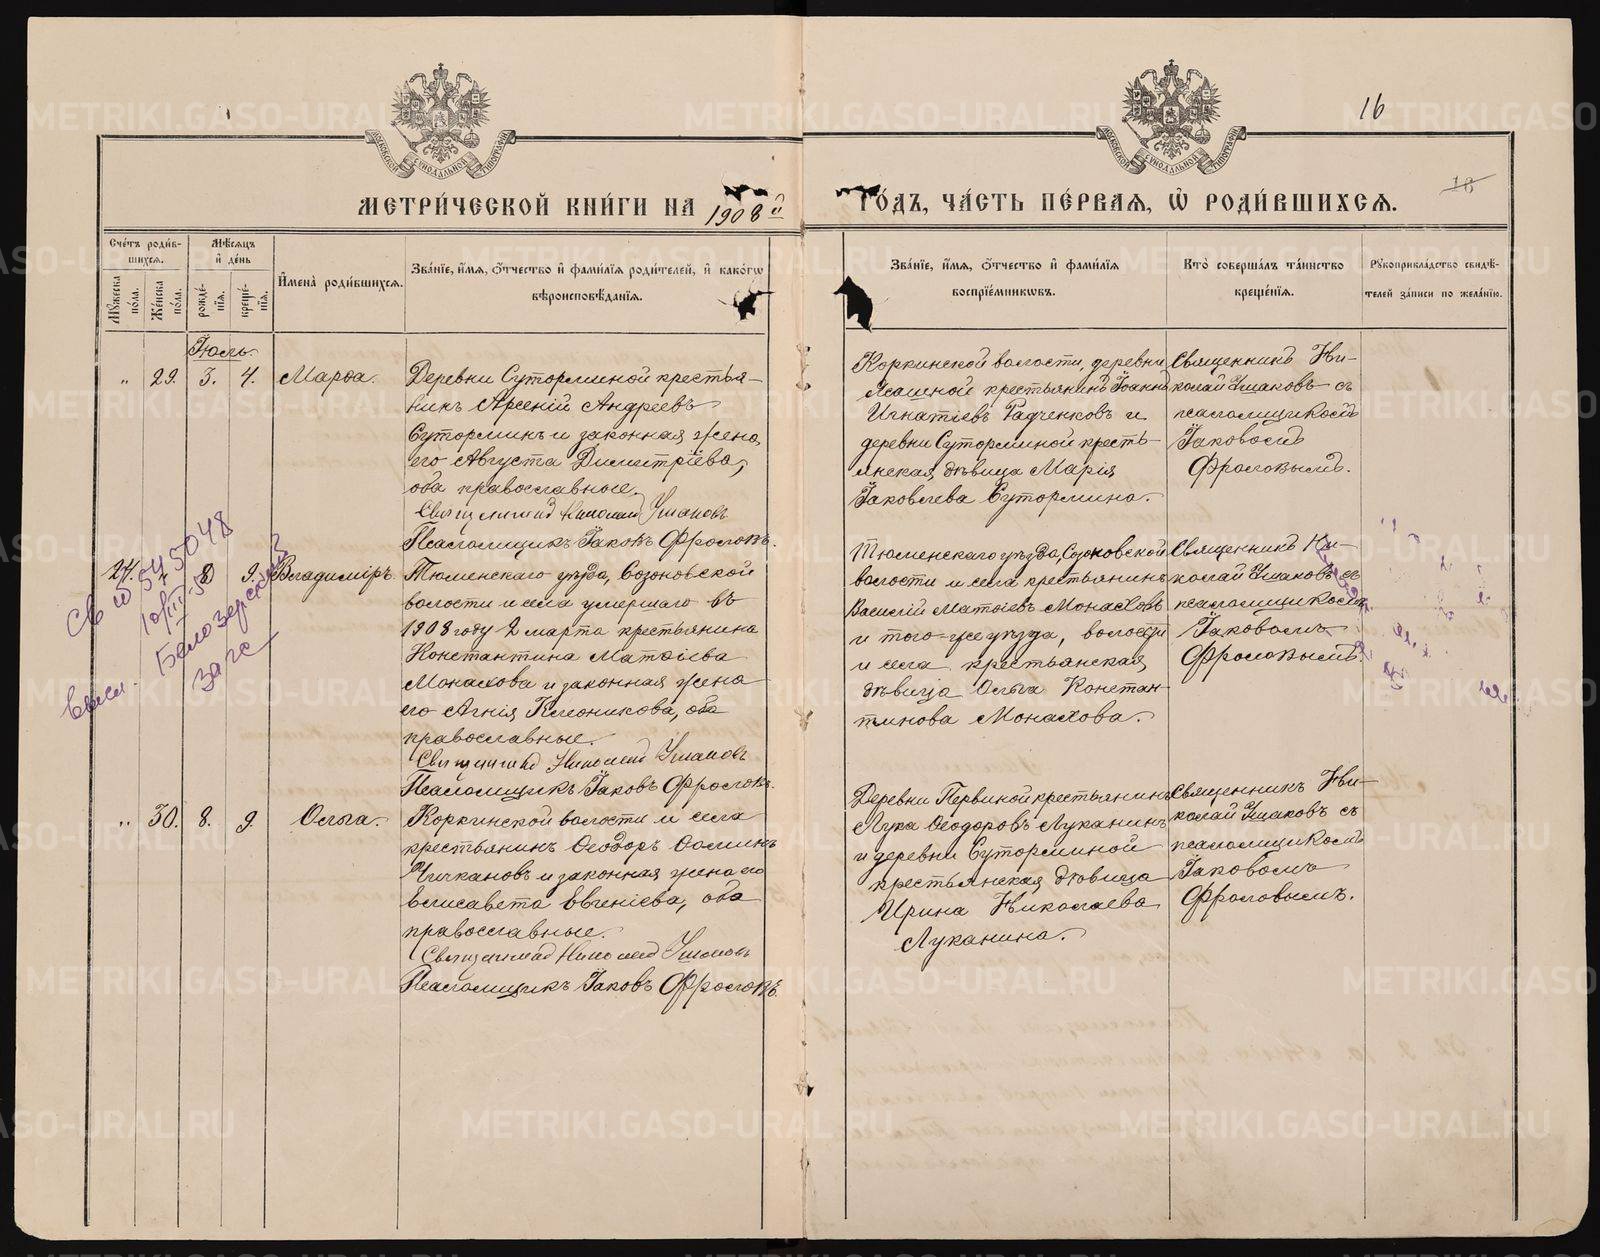 16
МЕТРИ́ЧЕСКОЙ КНИ́ГИ НА 1908 й
ГО́ДЪ, ЧА́СТЬ ПЕ́РВАѦ, Ѡ҆ РОДИ́ВШИХСѦ.
Сче́тъ роди́в-
шихсѧ.
Мѣ́сѧцъ
и҆ де́нь
Мꙋ́жеска по́ла.
Же́нска по́ла.
рожде́-нїѧ.
креще́-нїѧ.
И҆мена̀ роди́вшихсѧ.
Зва́нїе, и҆́мѧ, ѻ҆́тчество и҆ фами́лїѧ роди́телей, и҆ како́гѡ
вѣроисповѣ́данїѧ.
Зва́нїе, и҆́мѧ, ѻ҆́тчество и҆ фами́лїѧ
воспрїе́мникѡвъ.
Кто̀ соверша́лъ та́инство
креще́нїѧ.
Рꙋкоприкла́дство свидѣ́-
телей за́писи по жела́нїю.
Іюль.
" 29. 3. 4. Марѳа.
Деревни Суторминой крестья-
нинъ Арсеній Андреевъ
Суторминъ и законная жена
его Августа Димитріева,
оба православные.
Священникъ Николай Ушаковъ
Псаломщикъ Іаковъ Фроловъ.
Коркинской волости, деревни
Ясашной крестьянинъ Іоаннъ
Игнатіевъ Радченковъ и
деревни Суторминой кресть-
янская дѣвица Марія
Іаковлева Сутормина.
Священникъ Ни-
колай Ушаковъ съ
псаломщикомъ
Іаковомъ
Фроловымъ.
27. 8 9. Владиміръ.
Тюменскаго уѣзда, Созоновской
волости и села умершаго въ
1908 году 2 марта крестьянина
Константина Матѳіева
Монахова и законная жена
его Агнія Клеоникова, оба
православные.
Священникъ Николай Ушаковъ
Псаломщикъ Іаковъ Фроловъ.
Тюменскаго уѣзда, Созоновской
волости и села крестьянинъ
Василій Матѳіевъ Монаховъ
и того-же уѣзда, волости
и села крестьянская
дѣвица Ольга Констан-
тинова Монахова.
Священникъ Ни-
колай Ушаковъ съ
псаломщикомъ
Іаковомъ
Фроловымъ.
Св
545048
10/III-5
Белозерский
Загс
" 30. 8. 9. Ольга.
Коркинской волости и села
крестьянинъ Ѳеодоръ Ѳоминъ
Чичкановъ и законная жена его
Елисавета Евгеніева, оба
православные.
Священникъ Николай Ушаковъ
Псаломщикъ Іаковъ Фроловъ.
Деревни Первиной крестьянинъ
Лука Ѳеодоровъ Луканинъ
и деревни Суторминой
крестьянская дѣвица
Ирина Николаева
Луканина.
Священникъ Ни-
колай Ушаковъ съ
псаломщикомъ
Іаковомъ
Фроловымъ.
METRIKI.GASO-URAL.RU